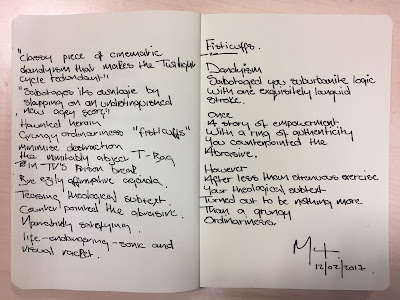 "Classy piece of cinematic
dandyism that makes the Twilight
cycle redundant"
"Sabotages its own logic by
slapping on an undistinguished
new agey score"
Haunted heroin
Grungy ordinariness "Fisticuffs"
minimise destruction
the inimitably abject T-Bag
in TV's Prison break
affirmative agenda.
Teasing theological subtext.
Counter pointed the abrasive.
Narratively satisfying.
life-endangering-sonic and
visual racket.
Fisticuffs.
Dandyism
Sabotaged you suburbanite logic
with one exquisitely languid
stroke.
Once
A story of empowerment
With a ring of authenticity
You counterpointed the
Abrasive.
However
After less than strenuous exercise
Your theological subtext
Turned out to be nothing more
Than a grungy
Ordinariness.
12/02/2017